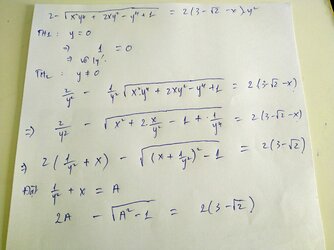 2 - √(x²y⁴ + 2xy² - y⁴ + 1) = 2(3 - √2 - x)y²
TH1: y = 0
⇒ 1 = 0
⇒ vô lý.
TH2: y ≠ 0
2/y² - 1/y² √(x²y⁴ + 2xy² - y⁴ + 1) = 2(3 - √2 - x)
⇒ 2/y² - √(x² + 2 x/y² - 1 + 1/y⁴) = 2(3 - √2 - x)
⇒ 2(1/y² + x) - √((x + 1/y²)² - 1) = 2(3 - √2)
Đặt 1/y² + x = A
2A - √(A² - 1) = 2(3 - √2)